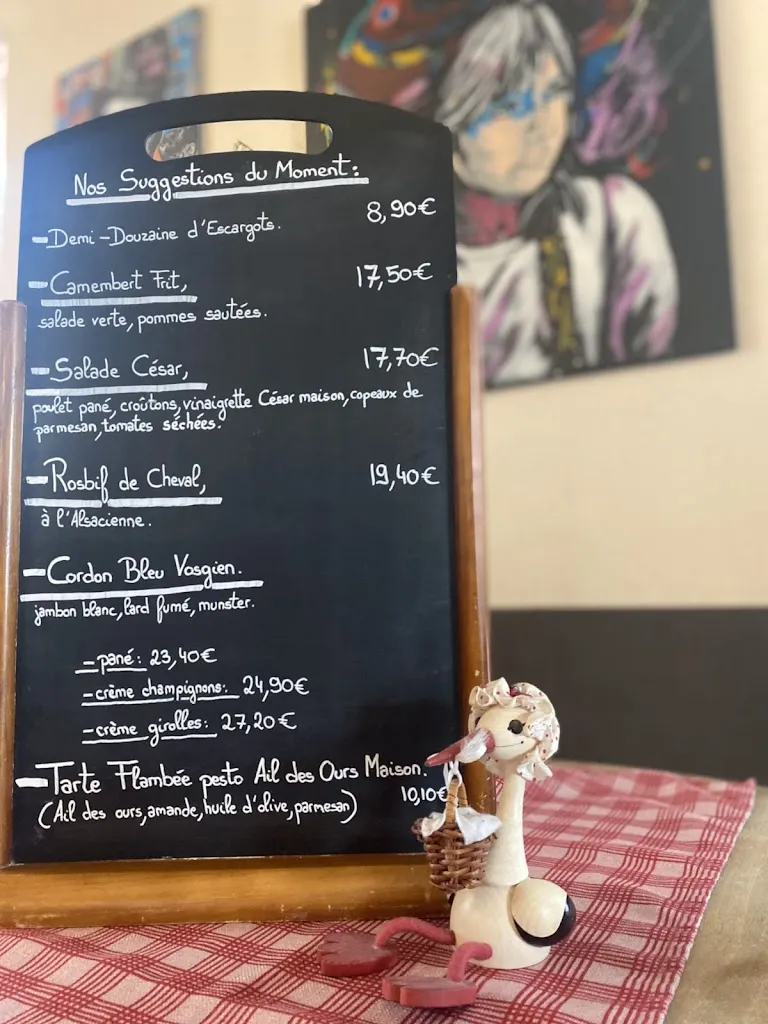 Nos Suggestions du Moment:
- Demi-Douzaine d'Escargots. 8,90€
- Camembert Frit, 17,50€
salade verte, pommes sautées.
- Salade César, 17,70€
poulet pané, croûtons, vinaigrette César maison, copeaux de
parmesan, tomates séchées.
- Rosbif de Cheval, 19,40€
à l'Alsacienne.
- Cordon Bleu Vosgien.
jambon blanc, lard fumé, munster.
- pané: 23,40€
- crème champignons: 24,90€
- crème girolles: 27,20€
- Tarte Flambée pesto Ail des Ours Maison.
(Ail des ours, amande, huile d'olive, parmesan) 10,10€